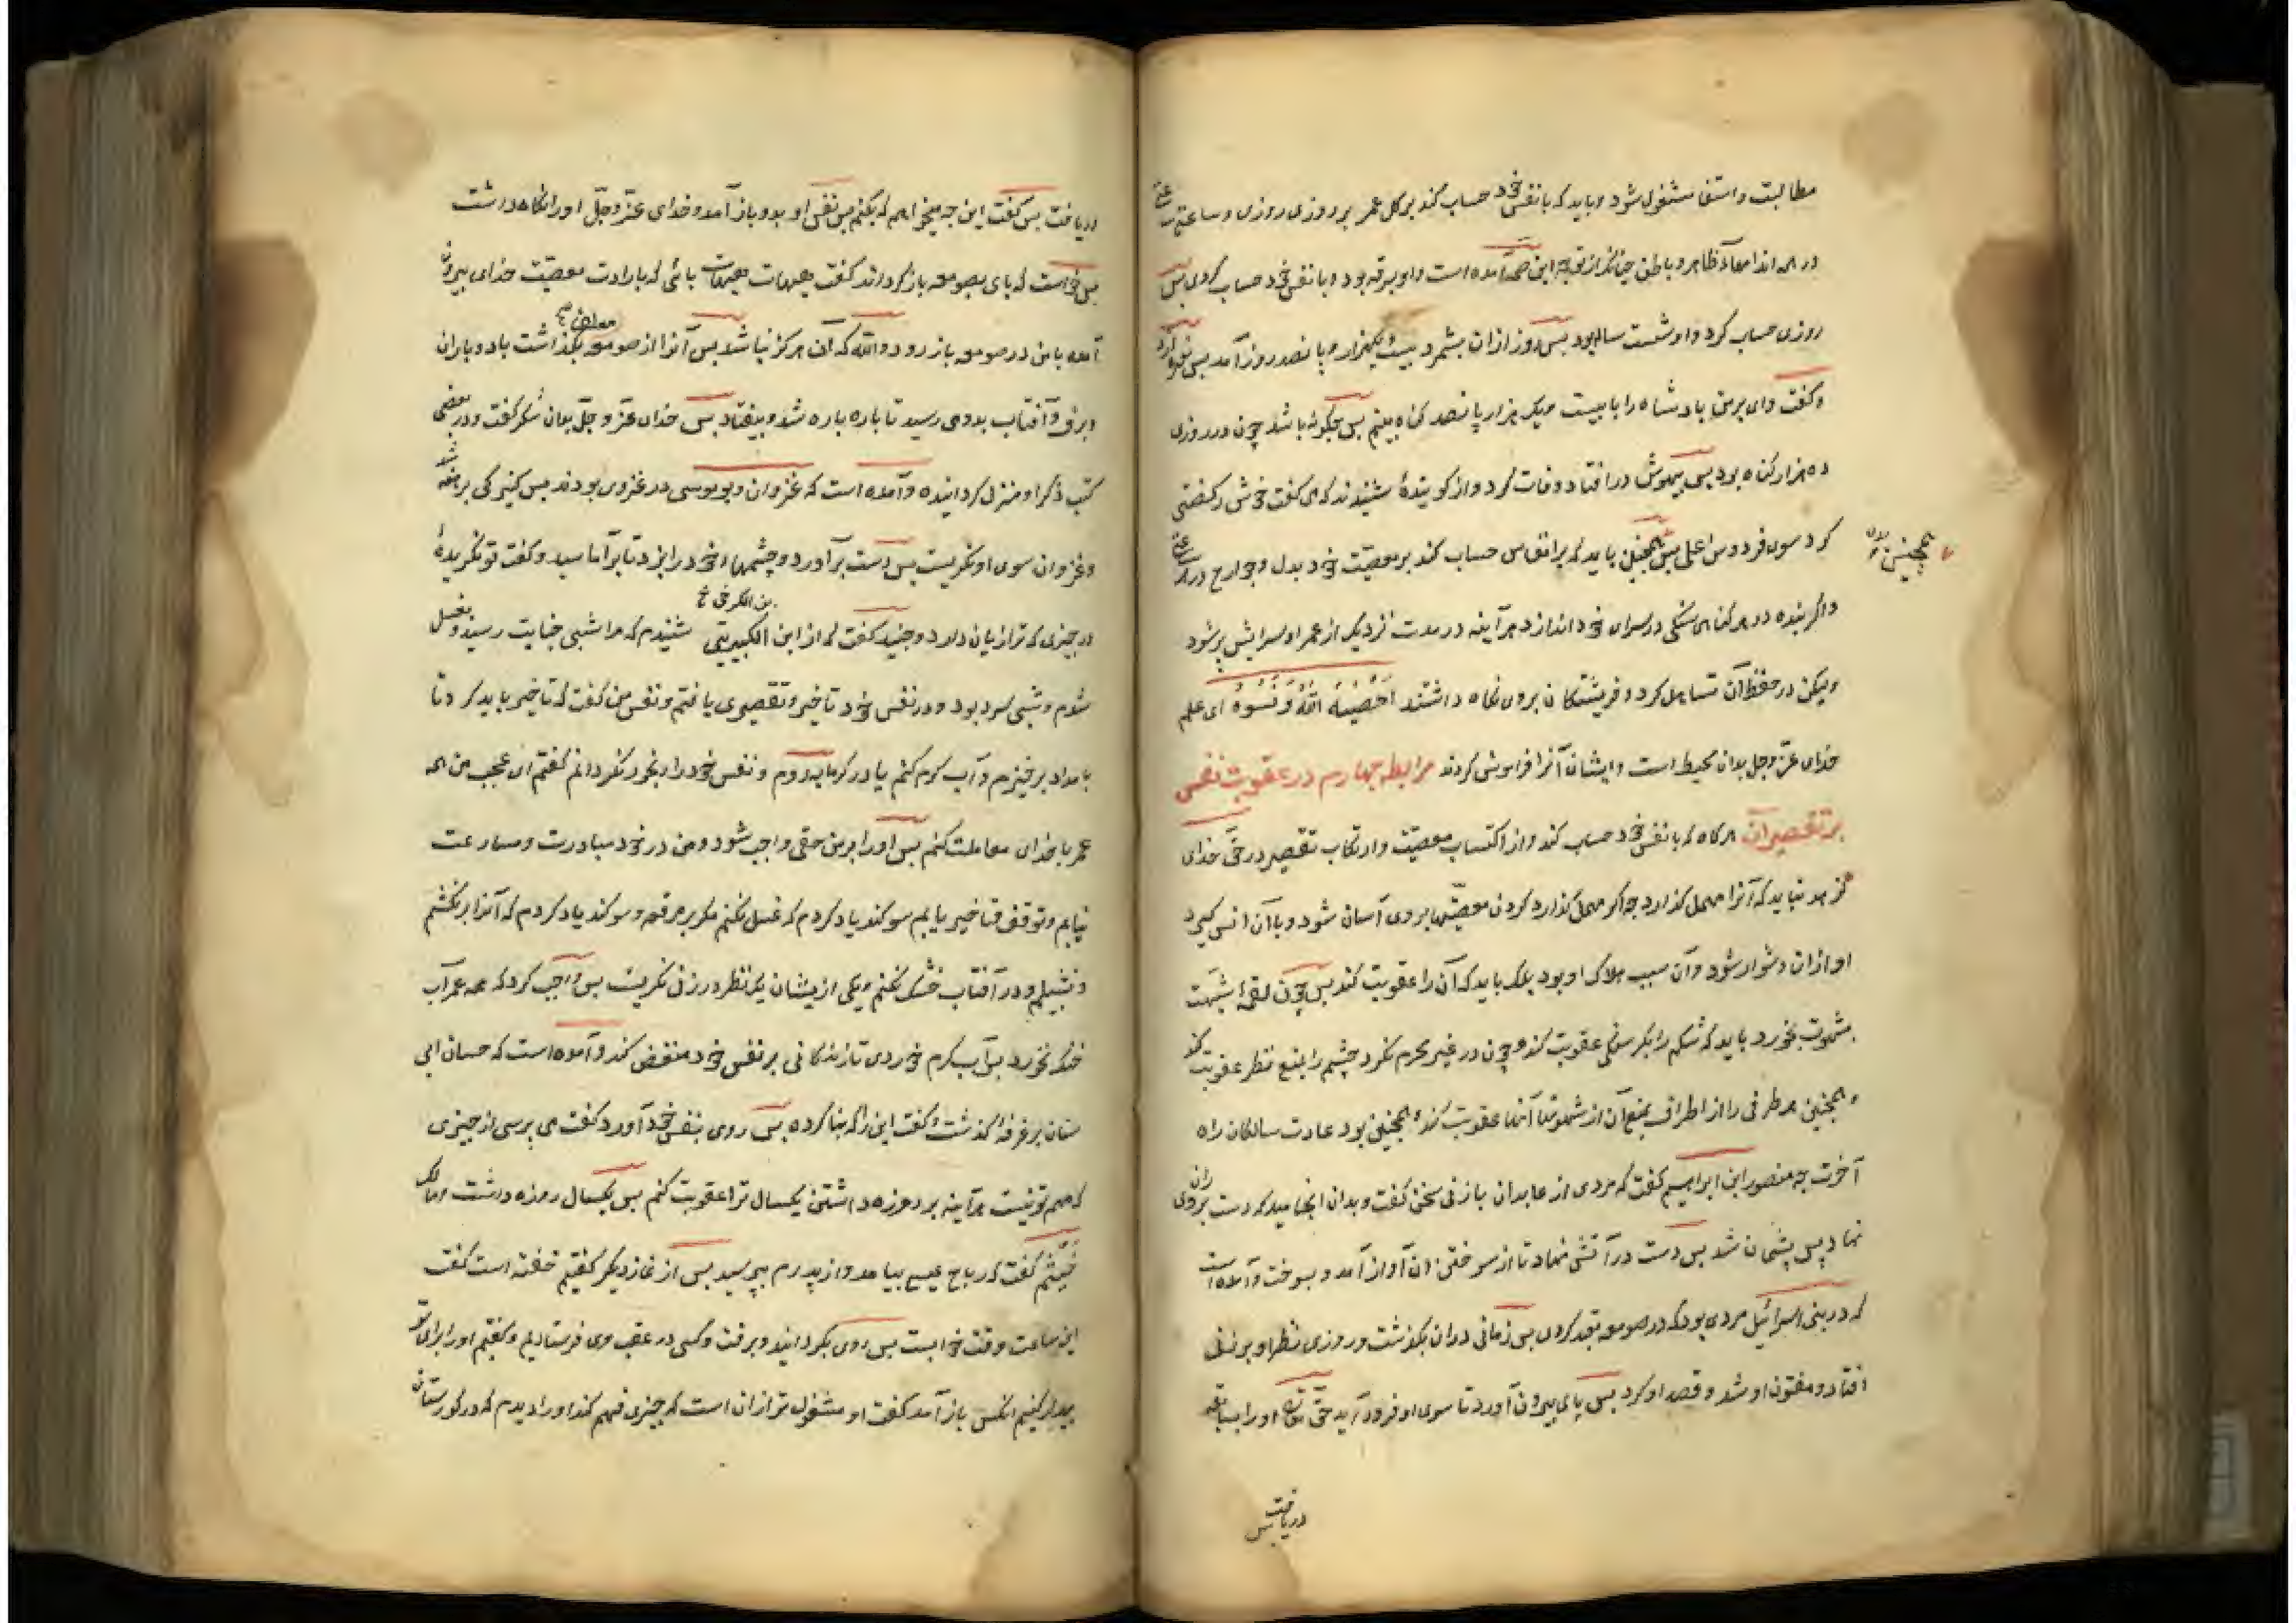 مطالبت و استفا مشغول شود و باید که با نفس خود حساب کند بر کل عمر بر روزی روزی و ساعتی ساعتی
در همه اندامهاء ظاهر و باطن چنانکه از توبه ابن صمّه آمده است و او برقه بود و با نفس خود حساب کردی پس
روزی حساب کرد و او شست ساله بود پس روز ازان بشمرد بیست و یکهزار و پانصد روز آمد پس نعره زد
و گفت وای بر من پادشاه را با بیست و یک هزار پانصد گناه بینم پس چگونه باشد چون در روزی
ده هزار گناه بود پس بیهوش در افتاد و وفات کرد و از گوینده شنیدند که می گفت خوش رکضتی
کرد سوی فردوس اعلی پس همچنین باید که بر انفاس حساب کند بر معصیت خود بدل و جوارح در هر ساعتی
همچنین
و اگر بنده در هر گناهی سنگی در سرای خود اندازد هرآینه در مدت نزدیک از عمر او سرایش پر شود
ولیکن در حفظ آن تساهل کرد و فریشتگان بروی نگاه داشتند اَحْصٰیهُ اللّٰهُ وَ نَسُوهُ ای علم
خدای عزّ و جل بدان محیط است و ایشان آنرا فراموش کردند مرابطه چهارم در عقوبت نفس
بر تقصیر آن هرگاه که با نفس خود حساب کند و از اکتساب معصیت و ارتکاب تقصیر در حقّ خدای
نرهد نباید که آنرا مهمل گذارد چه اگر مهمل گذارد کردن معصیتها بر وی آسان شود و با آن انس گیرد
او ازان دشوار شود و آن سبب هلاک او بود بلکه باید که آن را عقوبت کند پس چون لقمهٔ شبهت
بشهوت بخورد باید که شکم را بگرسنگی عقوبت کند و چون در غیر محرم نگرد چشم را بمنع نظر عقوبت کند
و همچنین هر طرفی را از اطراف بمنع آن از شهوتهاء آنها عقوبت کند و همچنین بود عادت سالکان راه
آخرت چه منصور ابن ابراهیم گفت که مردی از عابدان با زنی سخن گفت و بدان انجامید که دست بر ران وی
نهاد پس پشیمان شد پس دست در آتش نهاد تا از سوختن ان آواز آمد و بسوخت و آمده است
که در بنی اسرائیل مردی بود که در صومعه تعبد کردی پس زمانی دران بگذشت و روزی نظر او بر زنی
افتاد و مفتون او شد و قصد او کرد پس پای بیرون آورد تا سوی او فرود آید حقّ تعالی او را بسابقه
دریافت پس
دریافت پس گفت این چه میخواهم که بکنم پس نفس او بدو باز آمد و خدای عزّ و جلّ او را نگاه داشت
پس خواست که پای بصومعه باز گرداند گفت هیهات هیهات پائی که بارادت معصیت خدای بیرون
آمده با من در صومعه باز رود و اللّه که ان هرگز نباشد پس آنرا از صومعه معلق بگذاشت باد و باران
و برف و آفتاب بدو می رسید تا پاره پاره شد و بیفتاد پس خدای عزّ و جلّ بدان شکر گفت و در بعضی
کتب ذکر او منزل گردانیده و آمده است که غزوان و بوموسی در غزوی بودند پس کنیزکی برهنه شد
و غزوان سوی او نگریست پس دست برآورد و چشمهاء خود را بزد تا برآماسید و گفت تو نگرنده
در چیزی که ترا زیان دارد و جنید گفت که از ابن الکبیریتی شنیدم که مرا شبی جنابت رسید و بغسل
بن الکرخی خ
شدم و شبی سرد بود و در نفس خود تاخیر و تقصیری یافتم و نفس من گفت که تاخیر باید کرد تا
بامداد برخیزم و آب گرم کنم یا در گرمابه روم و نفس خود را رنجور نگردانم گفتم ای عجب من همه
عمر با خدای معاملت کنم پس او را بر من حقی واجب شود و من در خود مبادرت و مسارعت
نیابم و توقف و تاخیر یابم سوگند یاد کردم که غسل نکنم مگر بر مرقعه و سوگند یاد کردم که آنرا برنکشم
و نشپیلم و در آفتاب خشک نکنم و یکی از یشان یک نظر در زنی نگریست پس واجب کرد که همه عمر آب
خنک نخورد پس آب گرم خوردی تا زندگانی بر نفس خود منغض کند و آمده است که حسان ابی
سنان بر غرفهٔ گذشت و گفت این را که بنا کرده پس روی بنفس خود آورد گفت می پرسی از چیزی
که مهم تو نیست هرآینه بروزه داشتن یکسال ترا عقوبت کنم پس یکسال روزه داشت و مالک
ضیغم گفت که رباح عیسی بیامد و از پدرم بپرسید پس از نماز دیگر گفتیم خفته است گفت
این ساعت وقت خوابست پس روی بگردانید و برفت و کسی در عقب وی فرستادیم و گفتیم او را برای تو
بیدار کنیم انکس باز آمد گفت او مشغول تر ازان است که چیزی فهم کند او را دیدم که در گورستان